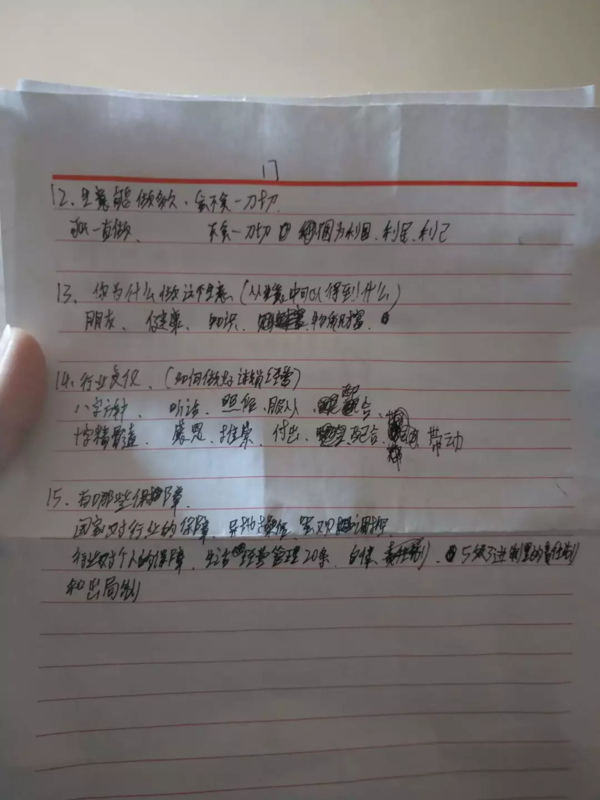 17
12. 生意能做多久、会不会一刀切
可以一直做、 不会一刀切 因为利国、利民、利己
13、你为什么做这个生意(从生意中可以得到什么)
朋友、健康、知识、物质财富
14、行业良仪、(如何做好连锁经营)
八字方针 听话、照做、服从、配合
十字精髓 感恩、推崇、付出、配合、带动
15、有哪些保障
国家对行业的保障、异地 宏观调控
行业对个人的保障、生活经营管理20条、自律、5级3进制里的责任制
和出局制